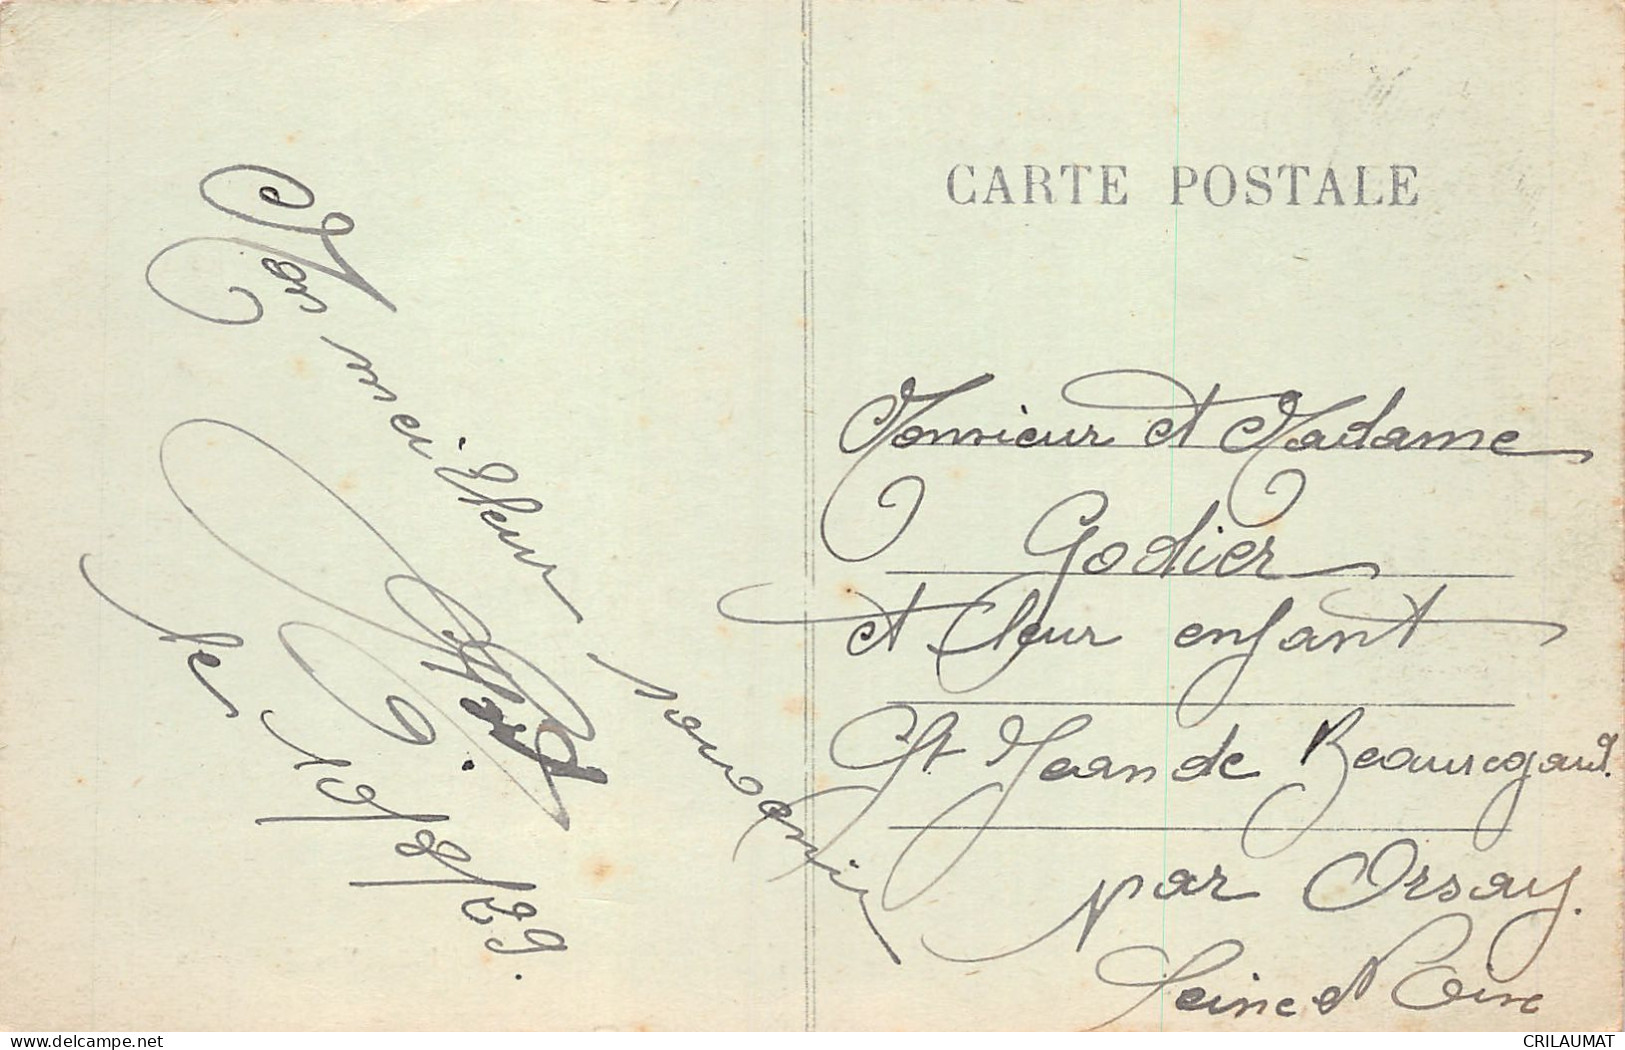 CARTE POSTALE
Mon meilleur souvenir
le 10/8/29.
Monsieur et Madame
Godier
et leur enfant
St Jean de Beauregard.
par Orsay.
Seine et Oise
delcampe.net
CRILAUMAT